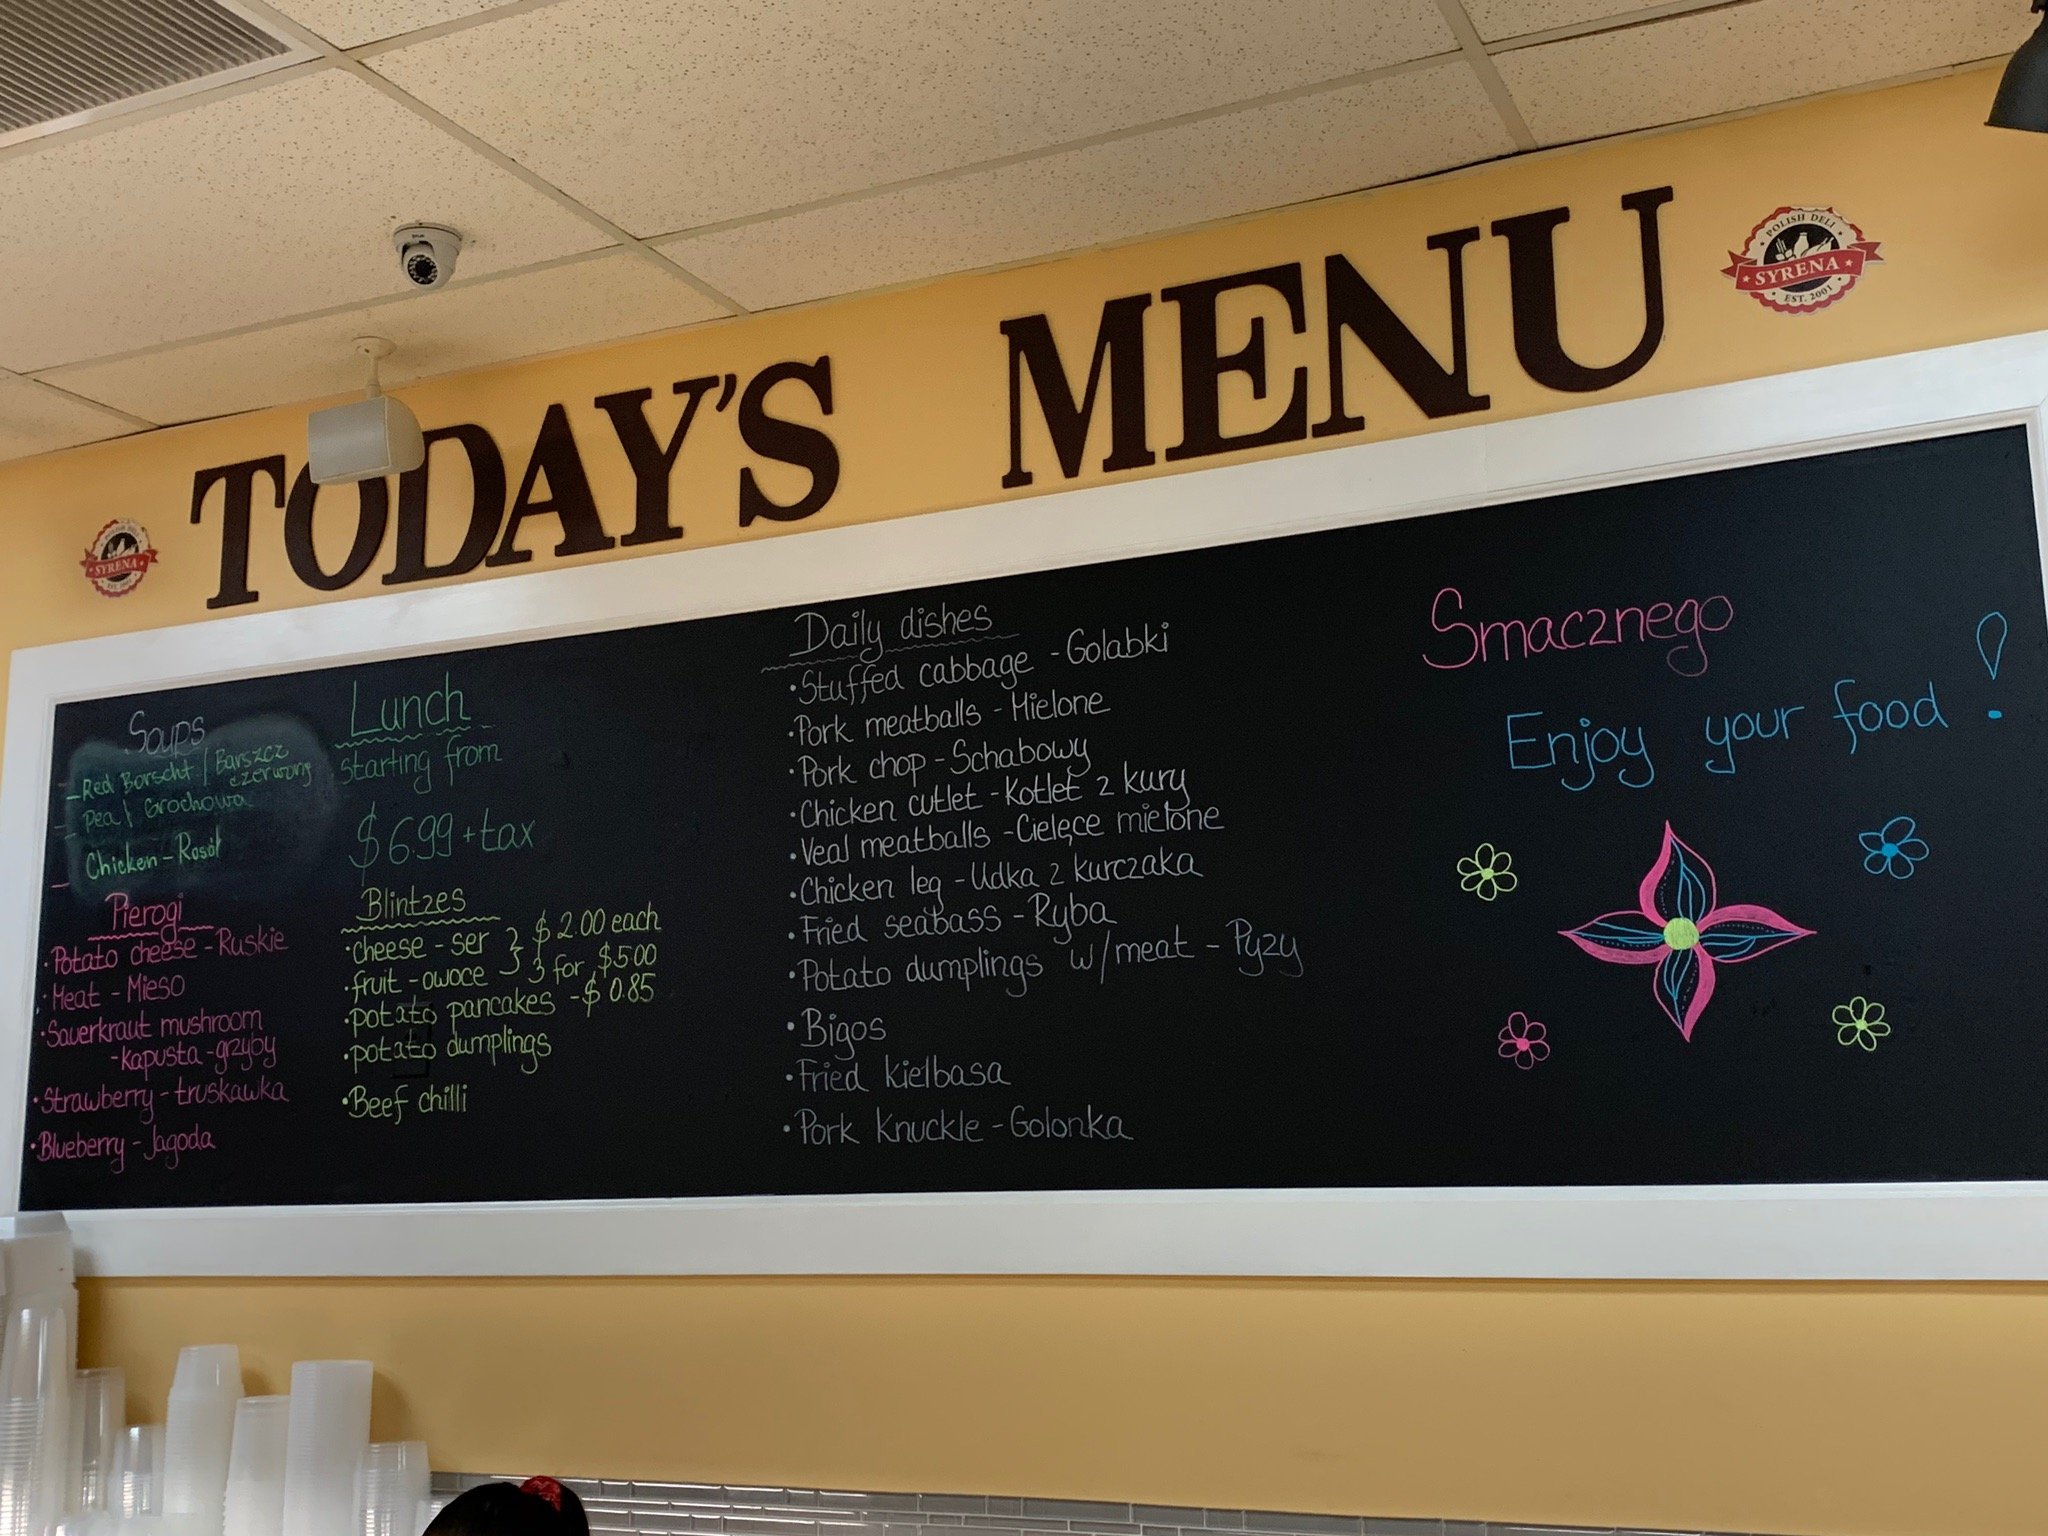 TODAY'S MENU
POLISH DELI
SYRENA
EST. 2001
SYRENA
Soups
- Red Borscht / Barszcz
czerwony
- Pea / Grochowa
Chicken - Rosół
Pierogi
• Potato cheese - Ruskie
• Meat - Mieso
• Sauerkraut mushroom
- kapusta - grzyby
• Strawberry - truskawka
• Blueberry - Jagoda
Lunch
starting from
$6.99 + tax
Blintzes
• cheese - ser } $2.00 each
• fruit - owoce } 3 for $5.00
• potato pancakes - $0.85
• potato dumplings
• Beef chilli
Daily dishes
• Stuffed cabbage - Golabki
• Pork meatballs - Mielone
• Pork chop - Schabowy
• Chicken cutlet - Kotlet z kury
• Veal meatballs - Cielęce mielone
• Chicken leg - Udka z kurczaka
• Fried seabass - Ryba
• Potato dumplings w/meat - Pyzy
• Bigos
• Fried kielbasa
• Pork knuckle - Golonka
Smacznego
Enjoy your food!